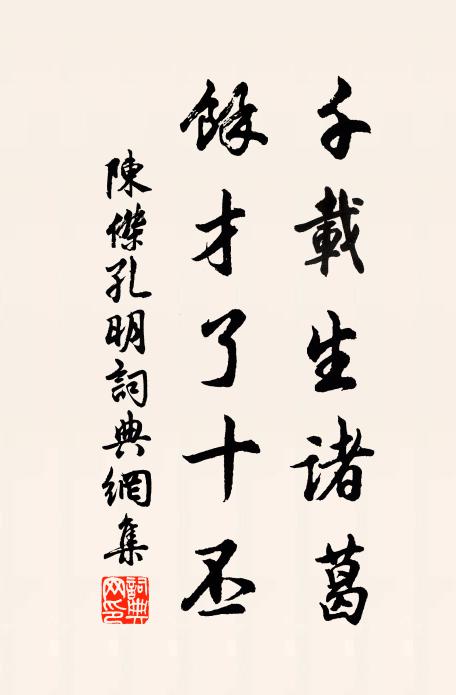 千載生諸葛
餘才了十丕
陳傑孔明詞典網集
詞典網印